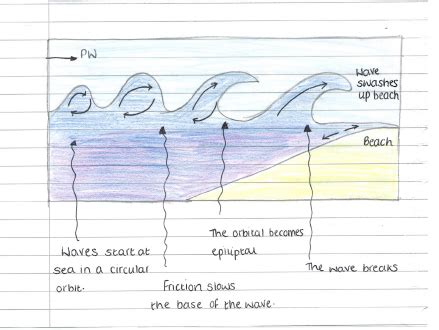 PW
Wave
swashes
up beach
Beach
Waves start at
sea in a circular
orbit.
Friction slows
the base of the wave.
The orbital becomes
epiliptal
The wave breaks